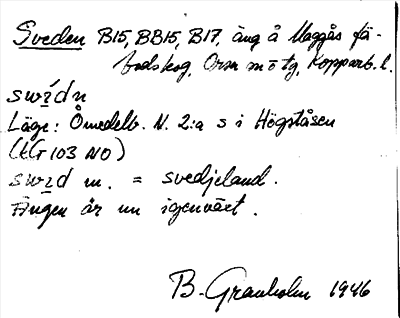 Sveden B15, BB15, B17, äng å Maggås fä-
bodskog, Orsa m o tg, Kopparb. l.
swídn
Läge: Omedelb. N. 2:a s i Högståsen
(tG 103 NO)
swid m. = svedjeland.
Ängen är nu igenväxt.
B. Granholm 1946